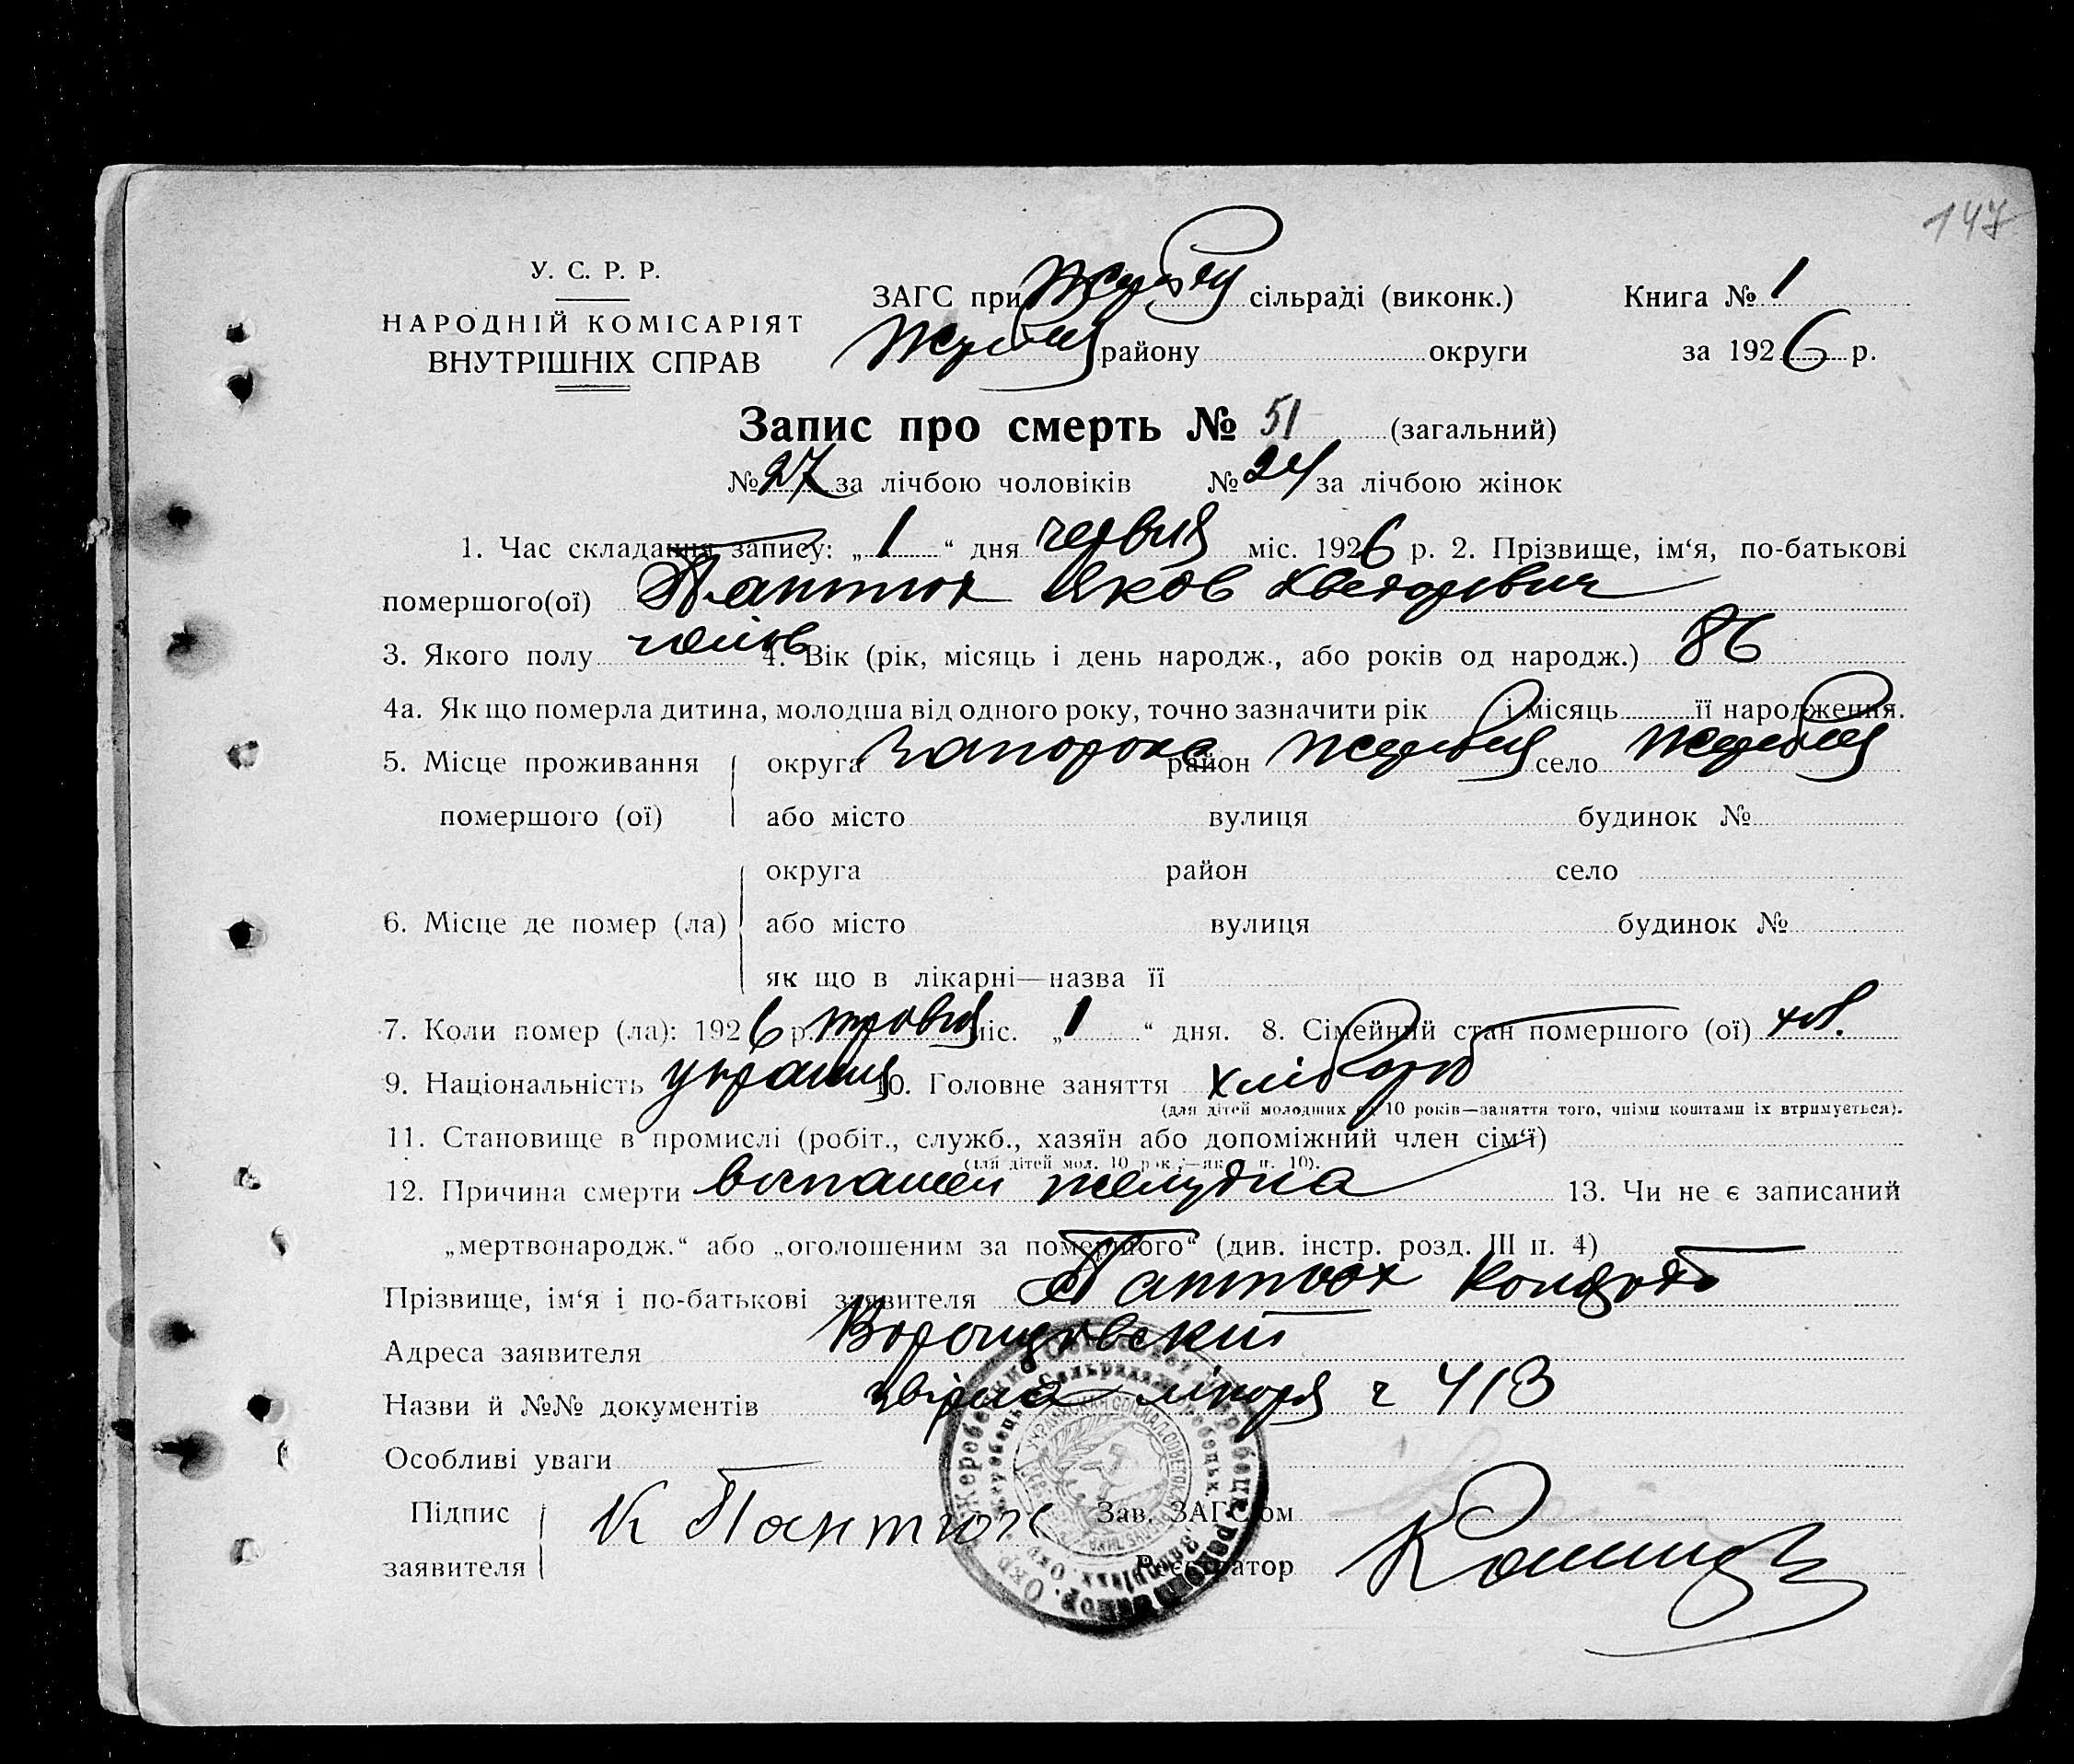 147
У. С. Р. Р.
НАРОДНІЙ КОМІСАРІЯТ
ВНУТРІШНІХ СПРАВ
ЗАГС при сільраді (виконк.)
Книга № 1
району округи
за 1926 р.
Запис про смерть № 51 (загальний)
№ 27 за лічбою чоловіків № 24 за лічбою жінок
1. Час складання запису: „1“ дня червня міс. 1926 р. 2. Прізвище, ім‘я, по-батькові
помершого(ої) Пантюх Яков Хведорович
3. Якого полу чолов 4. Вік (рік, місяць і день народж., або років од народж.) 86
4а. Як що померла дитина, молодша від одного року, точно зазначити рік і місяць її народження.
5. Місце проживання помершого (ої)
округа Запорока район Жереб село Жереб
або місто вулиця будинок №
6. Місце де помер (ла)
округа район село
або місто вулиця будинок №
як що в лікарні—назва її
7. Коли помер (ла): 1926 р. травня міс. „1“ дня. 8. Сімейний стан помершого (ої)
9. Національність україн 10. Головне заняття хлібороб
(для дітей молодших од 10 років—заняття того, чиїми коштами їх втримується).
11. Становище в промислі (робіт., служб., хазяїн або допоміжний член сім‘ї)
(для дітей мол. 10 рок.—як п. 10).
12. Причина смерти воспален желудка 13. Чи не є записаний
„мертвонародж.“ або „оголошеним за помершого“ (див. інстр. розд. III п. 4) —
Прізвище, ім‘я і по-батькові заявителя Пантюх Кондрат
Адреса заявителя
Назви й №№ документів 413
Особливі уваги —
Підпис заявителя К Пантюх
Зав. ЗАГС‘ом
Реєстратор